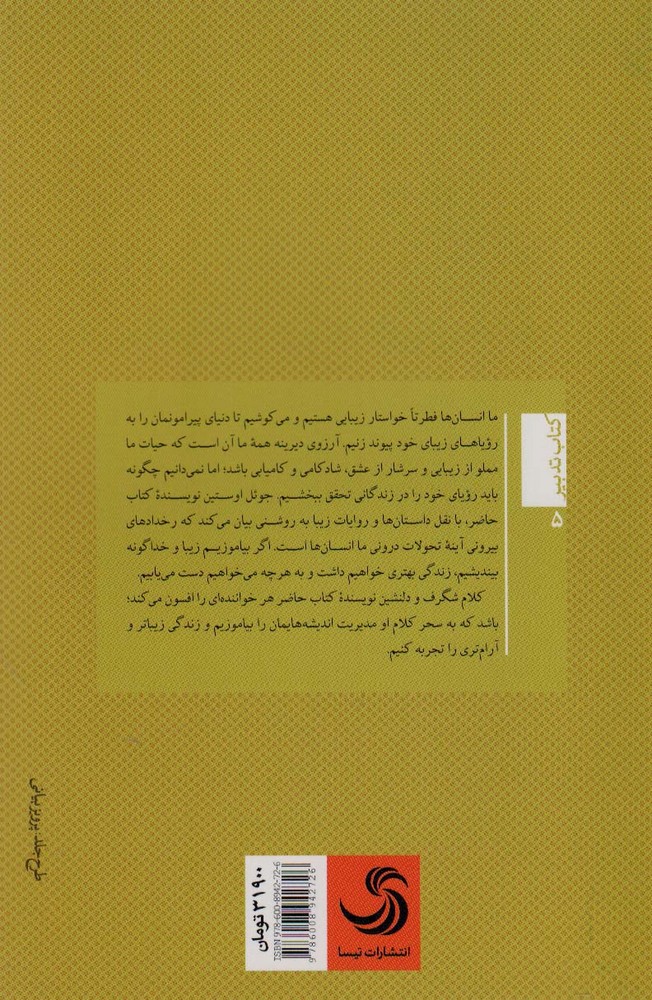 ما انسان‌ها فطرتاً خواستار زیبایی هستیم و می‌کوشیم تا دنیای پیرامونمان را به
رؤیاهای زیبای خود پیوند زنیم. آرزوی دیرینه همهٔ ما آن است که حیات ما
مملو از زیبایی و سرشار از عشق، شادکامی و کامیابی باشد؛ اما نمی‌دانیم چگونه
باید رؤیای خود را در زندگانی تحقق ببخشیم. جوئل اوستین نویسندهٔ کتاب
حاضر، با نقل داستان‌ها و روایات زیبا به روشنی بیان می‌کند که رخدادهای
بیرونی آینهٔ تحولات درونی ما انسان‌ها است. اگر بیاموزیم زیبا و خداگونه
بیندیشیم، زندگی بهتری خواهیم داشت و به هرچه می‌خواهیم دست می‌یابیم.
کلام شگرف و دلنشین نویسندهٔ کتاب حاضر هر خواننده‌ای را افسون می‌کند؛
باشد که به سحر کلام او مدیریت اندیشه‌هایمان را بیاموزیم و زندگی زیباتر و
آرام‌تری را تجربه کنیم.
کتاب تدبیر
۵
طرح جلد: پرویز بیانی
۳۱۹۰۰ تومان
ISBN 978-600-8942-72-6
9786008942726
انتشارات تیسا